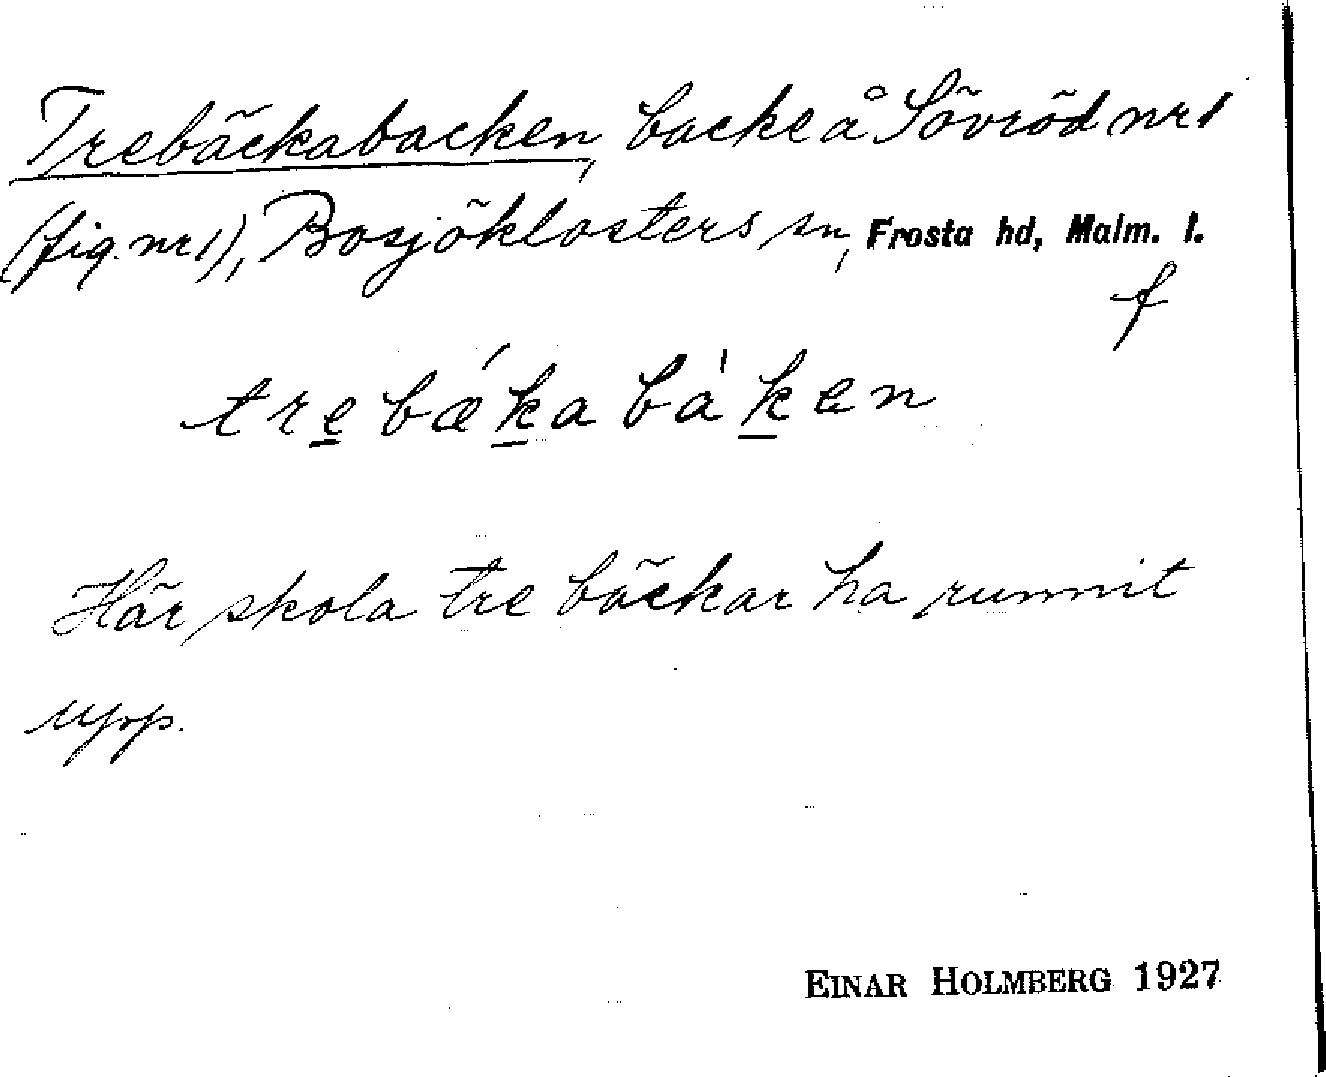 Trebäckabacken, backe å Sövröd nr 1
(fig. nr 1), Bosjöklosters sn, Frosta hd, Malm. l.
f
trebǽkabàken
Här skola tre bäckar ha runnit
upp.
EINAR HOLMBERG 1927